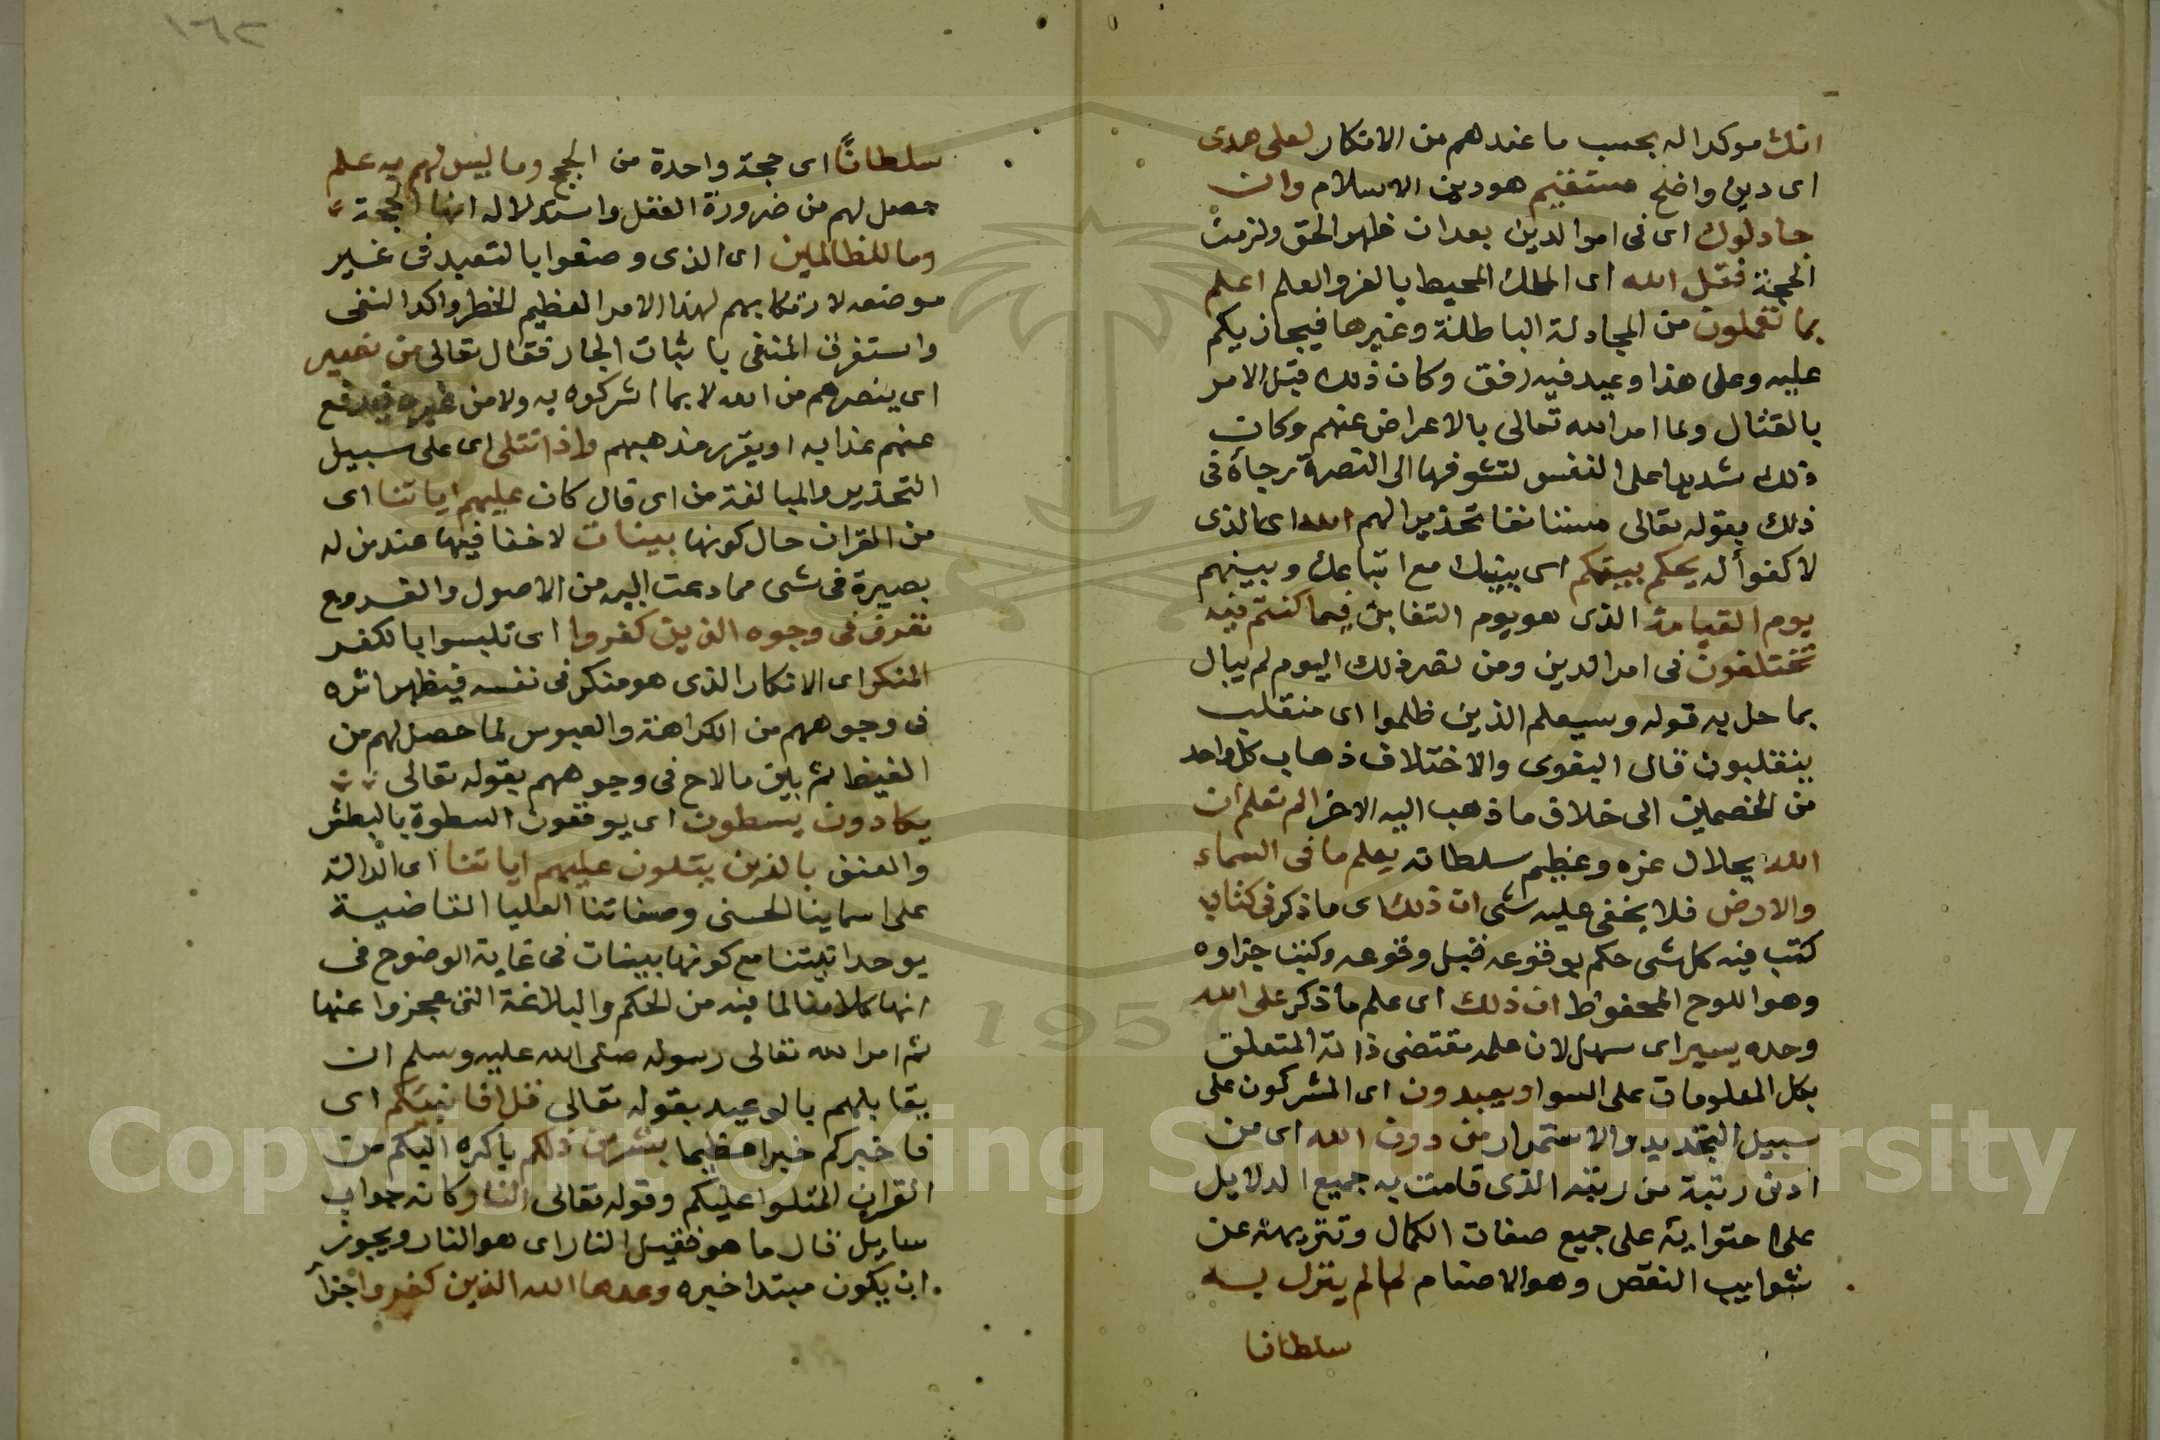 انك موكدا له بحسب ما عندهم من الانكار لعلى هدى
اى دين واضح مستقيم هو دين الاسلام وان
جادلوك اى فى امر الدين بعد ان ظهر الحق ولزمت
الحجة فقل الله اى الملك المحيط بالعز والعلم اعلم
بما تعملون من المجادلة الباطلة وغيرها فيجازيكم
عليه وعلى هذا وعيد فيه رفق وكان ذلك قبل الامر
بالقتال ولما امر الله تعالى بالاعراض عنهم وكان
ذلك شديدا على النفس لتشوفها الى النصرة رجاة فى
ذلك بقوله تعالى مستانفا تحذيرا لهم الله اى الذى
لا كفوا له يحكم بينكم اى بينك مع اتباعك وبينهم
يوم القيامة الذى هو يوم التغابن فيما كنتم فيه
تختلفون فى امر الدين ومن نصر ذلك اليوم لم يبال
بما حل به قوله وسيعلم الذين ظلموا اى منقلب
ينقلبون قال البغوى والاختلاف ذهاب كل واحد
من الخصمين الى خلاف ما ذهب اليه الاخر الم تعلم ان
الله بجلال عزه وعظيم سلطانه يعلم ما فى السماء
والارض فلا يخفى عليه شى ان ذلك اى ما ذكر فى كتاب
كتب فيه كل شى حكم بوقوعه قبل وقوعه وكتب جزاوه
وهو اللوح المحفوظ ان ذلك اى علم ما ذكر على الله
وحده يسير اى سهل لان علمه مقتضى ذاته المتعلق
بكل المعلومات على السوا ويعبدون اى المشركون على
سبيل التجديد والاستمرار من دون الله اى من
ادنى رتبة من رتبه الذى قامت به جميع الدلايل
على احتوائه على جميع صفات الكمال وتنزيهه عن
شوايب النقص وهو الاصنام ما لم ينزل به
سلطانا
سلطانًا اى حجة واحدة من الحجج وما ليس لهم به علم
حصل لهم من ضرورة العقل واستدلاله انها الحجة
وما للظالمين اى الذى وضعوا بالتعبد فى غير
موضعه لارتكابهم لهذا الامر العظيم الخطر واكد النفى
واستغرق المنفى باثبات الجار فقال تعالى من نصير
اى ينصرهم من الله لا بما اشركوه به ولا من غيره فيدفع
عنهم عذابه او يقرر مذهبهم واذا تتلى اى على سبيل
التحذير والمبالغة من اى قال كان عليهم اياتنا اى
من القران حال كونها بينات لا خفا فيها عند من له
بصيرة فى شى مما دعت اليه من الاصول والفروع
تعرف فى وجوه الذين كفروا اى تلبسوا بالكفر
المنكر اى الانكار الذى هو منكر فى نفسه فيظهر اثره
فى وجوههم من الكراهة والعبوس لما حصل لهم من
الغيظ ثم بين ما لاح فى وجوههم بقوله تعالى
يكادون يسطون اى يوقعون السطوة بالبطش
والعنف بالذين يتلون عليهم اياتنا اى الدالة
على اسماينا الحسنى وصفاتنا العليا القاضية
بوحدانيتنا مع كونها بينات فى غاية الوضوح فى
انها كلامنا لما فيه من الحكم والبلاغة التى عجزوا عنها
ثم امر الله تعالى رسوله صلى الله عليه وسلم ان
يقابلهم بالوعيد بقوله تعالى قل افانبيكم اى
فاخبركم خبرا عظيما بشر من ذلكم باكره اليكم من
القران المتلوا عليكم وقوله تعالى النار كانه جواب
سايل قال ما هو فقيل النار اى هو النار ويجوز
ان يكون مبتدا خبره وعدها الله الذين كفروا جزأ
Copyright © King Saud University
1957